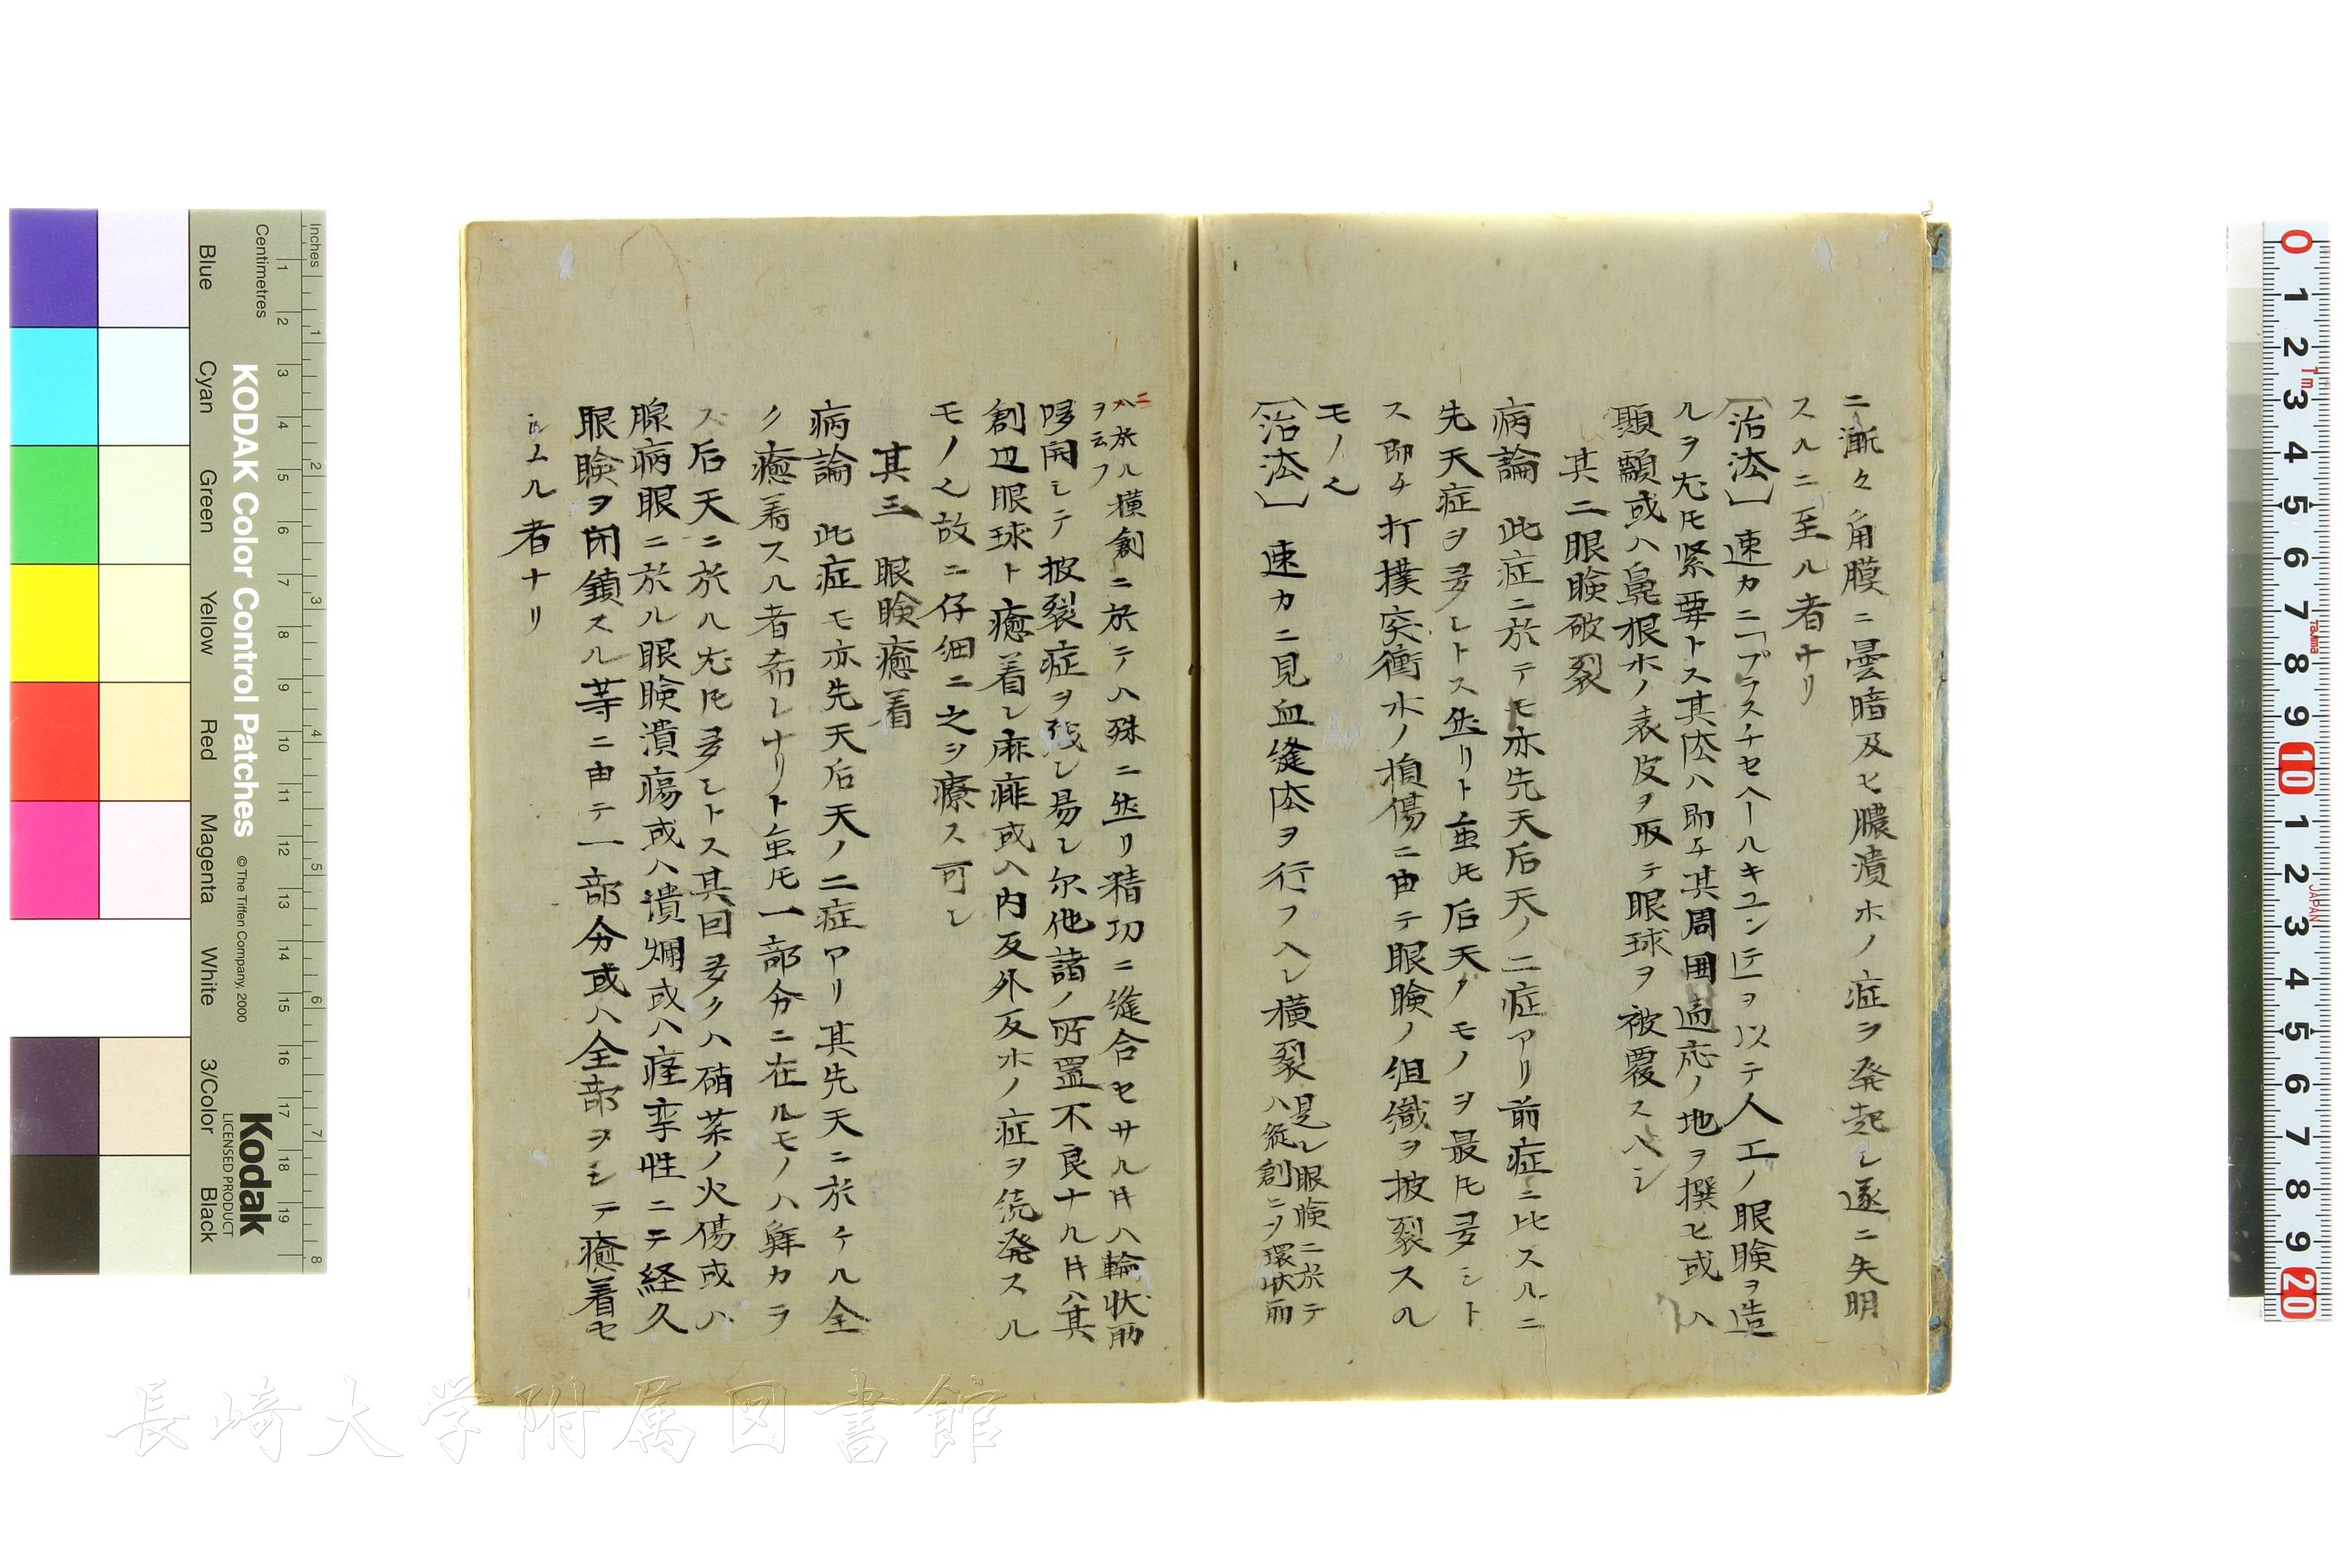 ニ漸々角膜ニ曇暗及ヒ膿潰ホノ症ヲ発起シ遂ニ失明
スルニ至ル者ナリ
〔治法〕速カニ「ブラスチセヘールキユンデ」ヲ以テ人工ノ眼瞼ヲ造
ルヲ尤モ緊要トス其法ハ即チ其周囲適応ノ地ヲ撰ヒ或ハ
顳顬或ハ鼻根ホノ表皮ヲ取テ眼球ヲ被覆スヘシ
其二眼瞼破裂
病論 此症ニ於テモ亦先天后天ノ二症アリ前症ニ比スルニ
先天症ヲ多シトス然リト雖モ后天ノモノヲ最モ多シト
ス即チ打撲突衝ホノ損傷ニ由テ眼瞼ノ組織ヲ披裂スル
モノ也
〔治法〕 速カニ見血縫法ヲ行フヘシ横裂
是レ眼瞼ニ於テ
ハ縦創ニヲ環状筋
ニ
ハ於ル横創
ヲ云フ
ニ於テハ殊ニ然リ精功ニ縫合セサル片ハ輪状筋
哆開シテ披裂症ヲ残シ易シ尓他諸ノ所置不良ナル片ハ其
創辺眼球ト癒着シ麻痱或ハ内反外反ホノ症ヲ続発スル
モノ也故ニ仔細ニ之ヲ療ス可シ
其三 眼瞼癒着
病論 此症モ亦先天后天ノ二症アリ其先天ニ於ケル全
ク癒着スル者希レナリト雖モ一部分ニ在ルモノハ鮮カラ
ズ后天ニ於ル尤モ多シトス其因多クハ硝薬ノ火傷或ハ
腺病眼ニ於ル眼瞼潰瘍或ハ潰爛或ハ痙孿性ニテ経久
眼瞼ヲ閉鎖スル等ニ由テ一部分或ハ全部ヲシテ癒着セ
シムル者ナリ
長崎大学附属図書館
KODAK Color Control Patches
© The Tiffen Company, 2000
Kodak
LICENSED PRODUCT
Inches
Centimetres
Blue Cyan Green Yellow Red Magenta White 3/Color Black
1 2 3 4 5 6 7 8 9 10 11 12 13 14 15 16 17 18 19
1 2 3 4 5 6 7 8
0 1 2 3 4 5 6 7 8 9 10 1 2 3 4 5 6 7 8 9 20
1m
Tajima
JAPAN